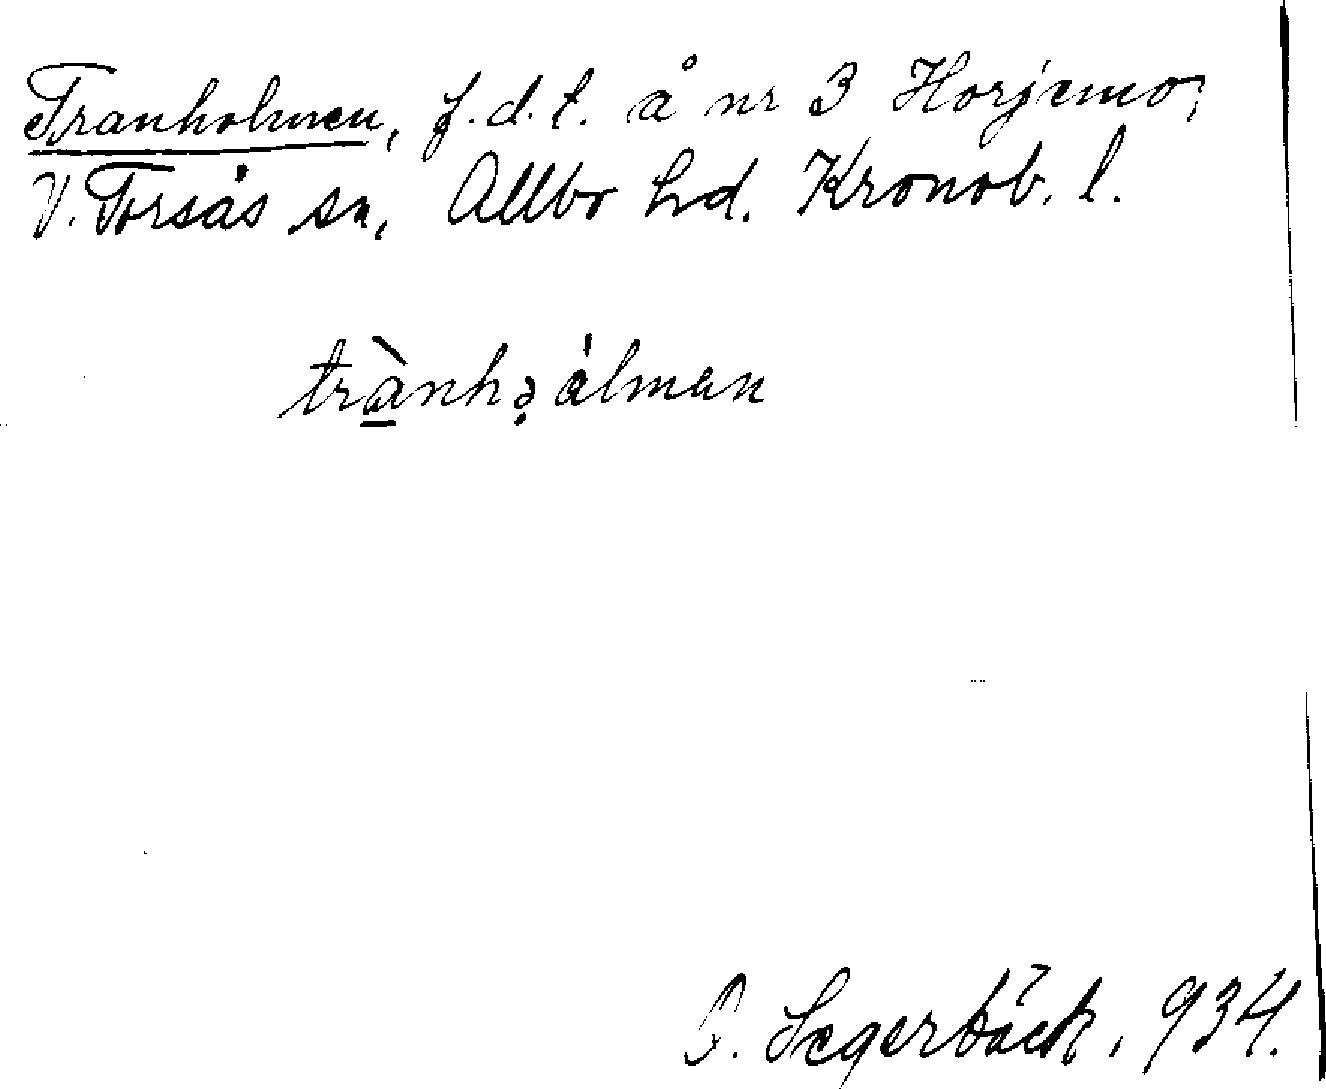 Tranholmen, f.d.t. å nr 3 Horjemo,
V. Torsås sn, Allbo hd. Kronob. l.
trànhəálmen
Segerbäck, 934.